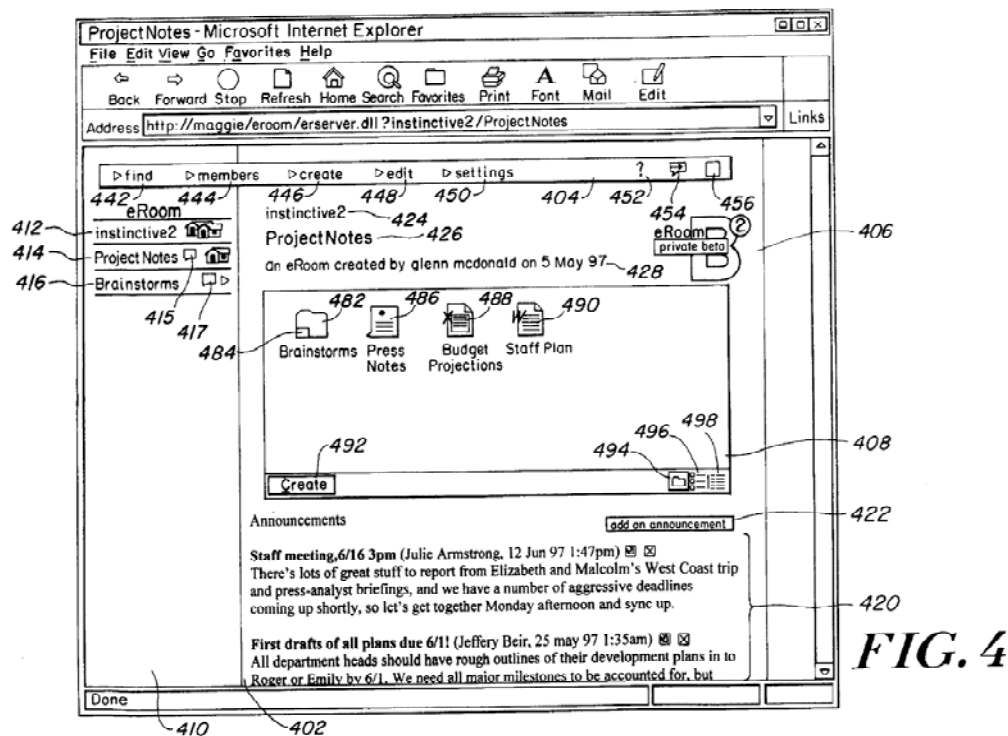 ProjectNotes - Microsoft Internet Explorer
File Edit View Go Favorites Help
Back Forward Stop Refresh Home Search Favorites Print Font Mail Edit
Address http://maggie/eroom/erserver.dll?instinctive2/ProjectNotes Links
find members create edit settings ?
442 444 446 448 450 404 452 454 456
eRoom
412 instinctive2
414 ProjectNotes
416 Brainstorms
415 417
instinctive2 424
ProjectNotes 426
an eRoom created by glenn mcdonald on 5 May 97 428
eRoom 2
private beta
B
406
482 486 488 490
484
Brainstorms Press Notes Budget Projections Staff Plan
X W
492 494 496 498 408
Create
Announcements add an announcement 422
Staff meeting,6/16 3pm (Julie Armstrong, 12 Jun 97 1:47pm)
There's lots of great stuff to report from Elizabeth and Malcolm's West Coast trip
and press-analyst briefings, and we have a number of aggressive deadlines
coming up shortly, so let's get together Monday afternoon and sync up.
420
First drafts of all plans due 6/1! (Jeffery Beir, 25 may 97 1:35am)
All department heads should have rough outlines of their development plans in to
Roger or Emily by 6/1. We need all major milestones to be accounted for, but
Done
410 402
FIG. 4